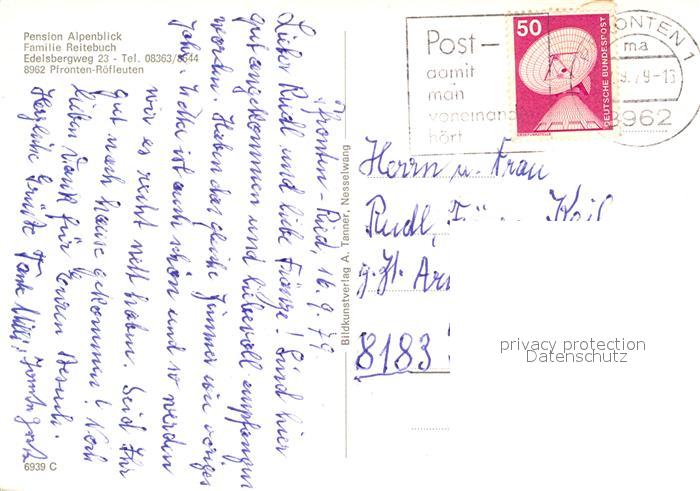 Pension Alpenblick
Familie Reitebuch
Edelsbergweg 23 - Tel. 08363/8644
8962 Pfronten-Röfleuten
Pfronten-Ried, 16.9.79
Lieber Rudl und liebe Fränze! Sind hier
gut angekommen und liebevoll empfangen
worden. Haben das gleiche Zimmer wie voriges
Jahr. Ist auch schön und so werden
wir es recht nett haben. Seid Ihr
gut nach Hause gekommen? Noch
lieben Dank für Euren Besuch.
Herzliche Grüße Tante
6939 C
Bildkunstverlag A. Tanner, Nesselwang
Post-
damit
man
voneinander
hört
50
DEUTSCHE BUNDESPOST
PFRONTEN 1
ma
9.79-13
8962
Herrn u. Frau
Rudl
z. Zt.
8183
privacy protection
Datenschutz